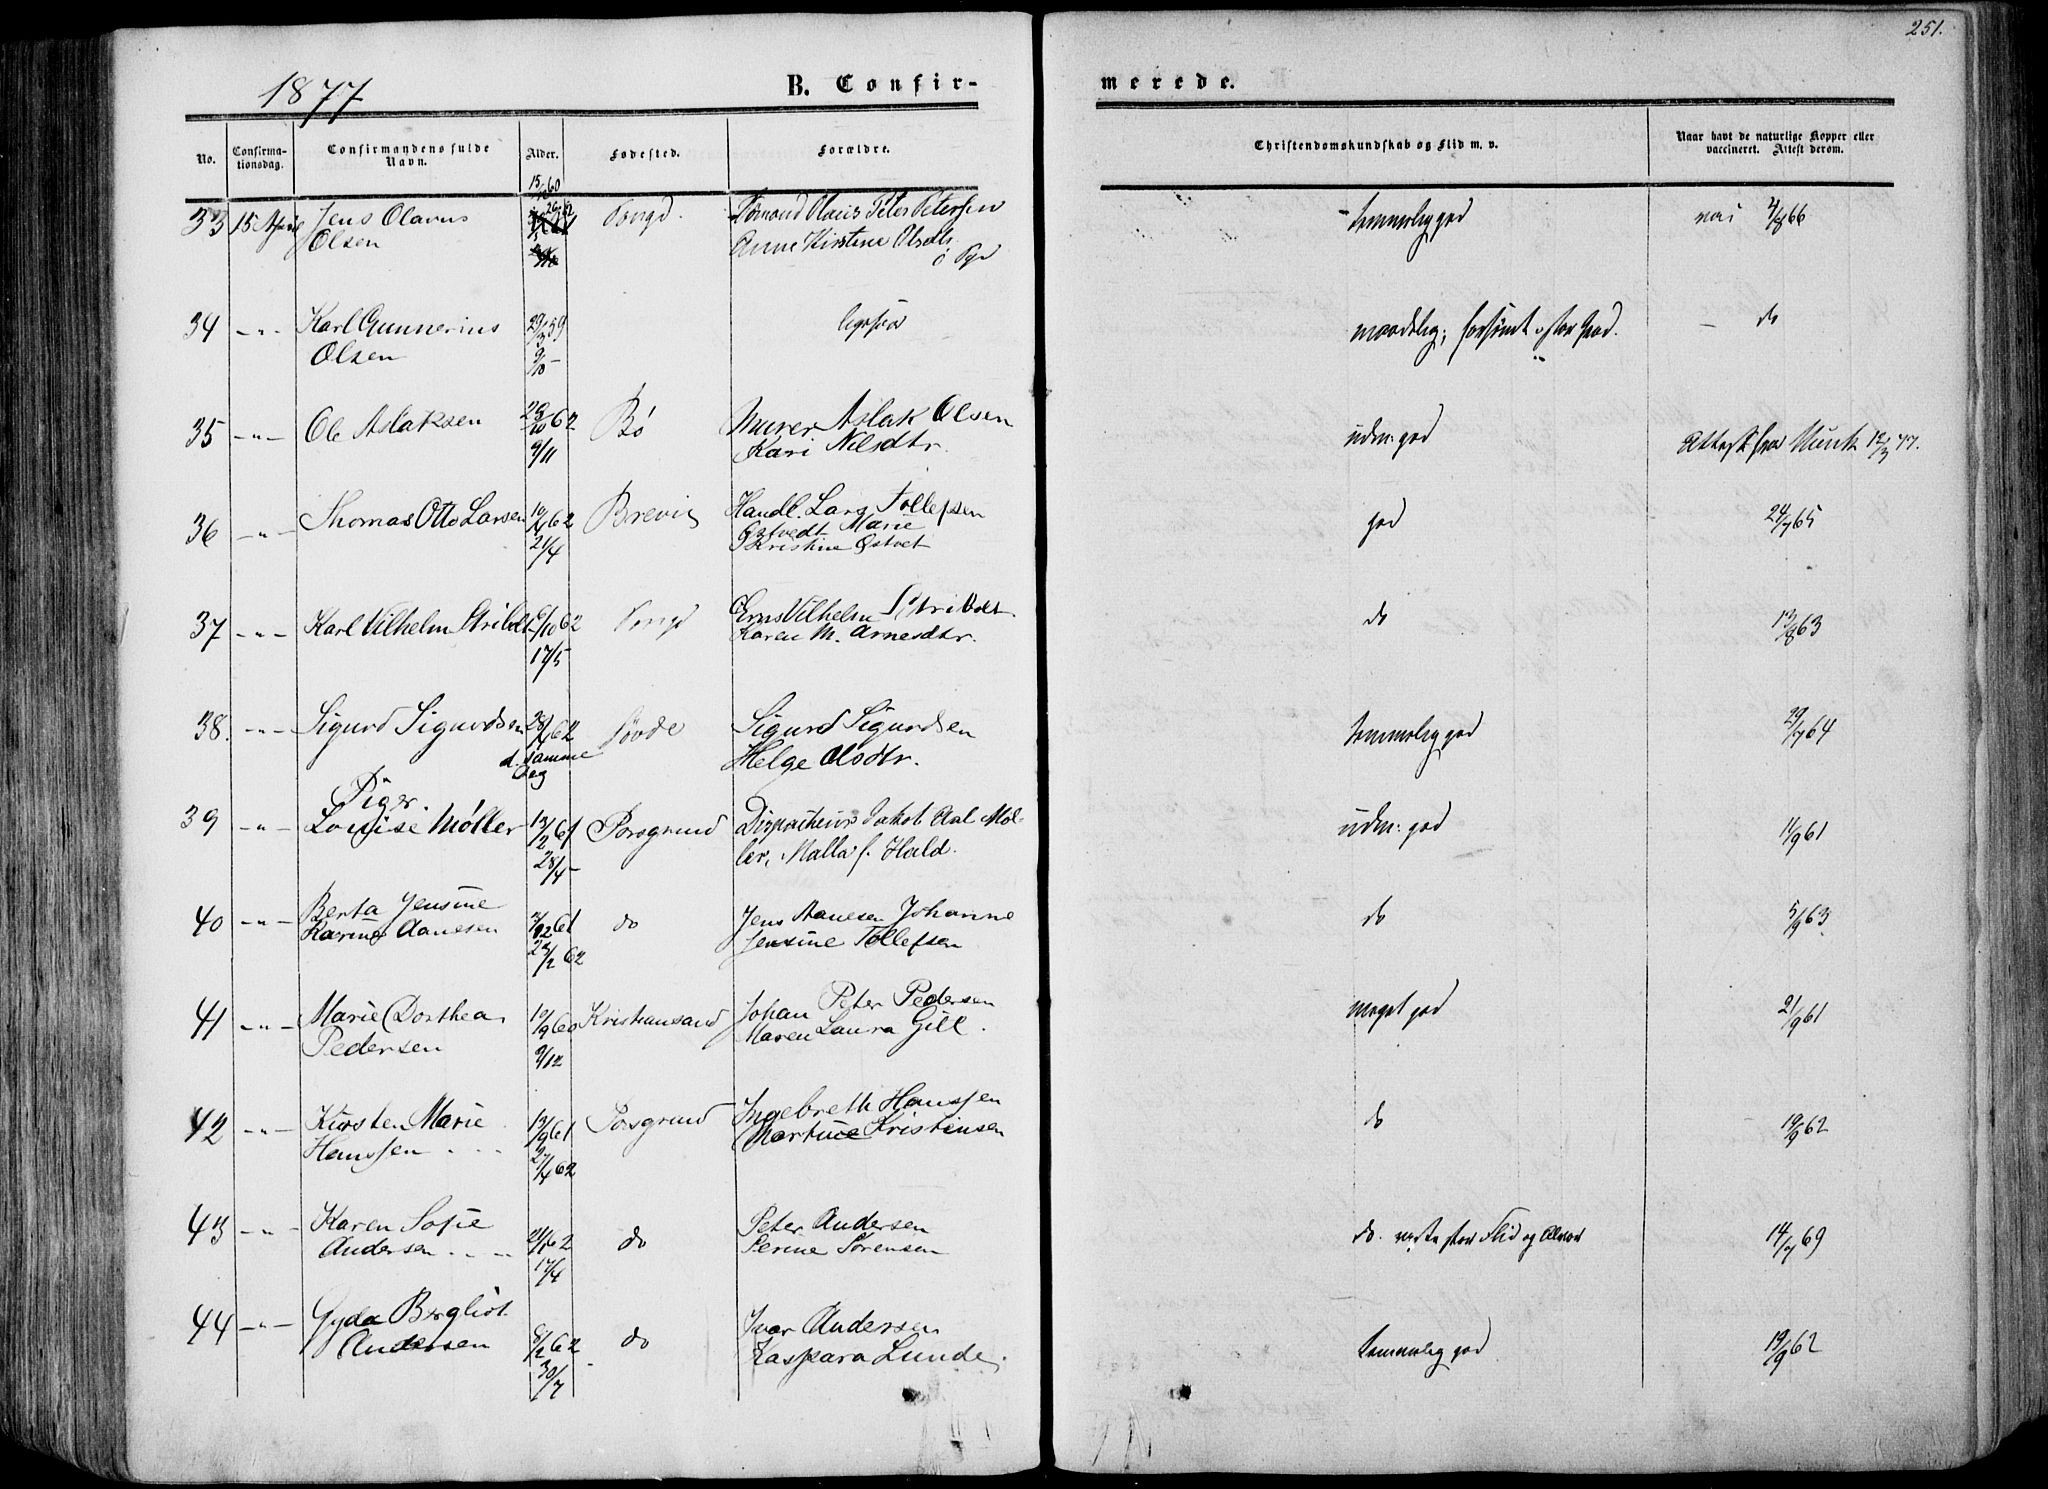 251.
1877
B. Confirmerede.
No.
Confirmationsdag.
Confirmandens fulde Navn.
Alder.
Fødested.
Forældre.
Christendomskundskab og Flid m. v.
Naar havt de naturlige Kopper eller vaccineret. Attest derom.
33 15 April Jens Olavus 15/ 60 Porsgd. Olaus Peter Petersen temmelig god vac 4/8 66
Olsen Anne Kirstine Olsdtr.
34 -"- Karl Gunnerius 29/3 59 do
Olsen 9/10 -
35 -"- Ole Aslaksen 23/10 62 Bø Murer Aslak Olsen udm: god Attest fra Munk 12/3 77.
9/11 Kari Nilsdtr.
36 -"- Thomas Otto Larsen 10/1 62 Brevig Handl. Lars Tollefsen god 24/7 65
21/4 Østvedt Marie
Kristine Østvet
37 -"- Karl Vilhelm Stribolt 6/10 62 Porsgd Erns Vilhelm Stribolt do 13/8 63
17/5 Karen M. Arnesdtr.
38. -"- Sigurd Sigurdsen 28/1 62 Søvde Sigurd Sigurdsen temmelig god 29/7 64
d. samme Dag Helge Olsdtr.
Piger.
39 -"- Louise Møller 13/2 61 Porsgrund Dispacheur Jakob Aal Møl- udm: god 11/9 61
28/4 - ler, Malla f. Hald.
40 -"- Berta Jensine /12 61 do Jens Aanesen Johanne do 5/9 63
Karine Aanesen 23/2 62 Jensine Tollefsen
41 -"- Marie Dorthea 10/9 60 Kristiansand Johan Peter Pedersen meget god 2/9 61
Pedersen 9/12 Maren Laura Gill.
42 -"- Kirsten Marie 19/9 61 Porsgrund Ingebreth Hanssen do 19/9 62
Hanssen 27/4 62 Martine Kristensen
43 -"- Karen Sofie 21/1 62 do Peter Andersen do. stor Flid og Alvor 14/7 69
Andersen 17/4 Perine Sørensen
44 -"- Gyda Bergliot 8/2 62 do Ivar Andersen temmelig god 19/9 62
Andersen 30/7 Kaspara Lunde.